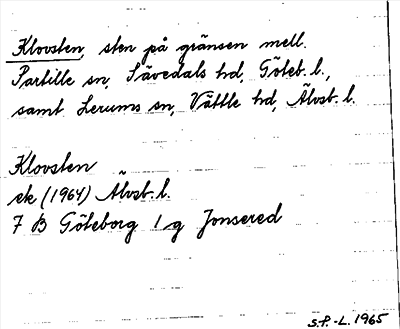 Klovsten, sten på gränsen mell.
Partille sn, Sävedals hd, Göteb. l.,
samt Lerums sn, Vättle hd, Älvsb. l.
Klovsten
ek (1964) Älvsb. l.
7 B Göteborg 1 g Jonsered
S.P.-L. 1965